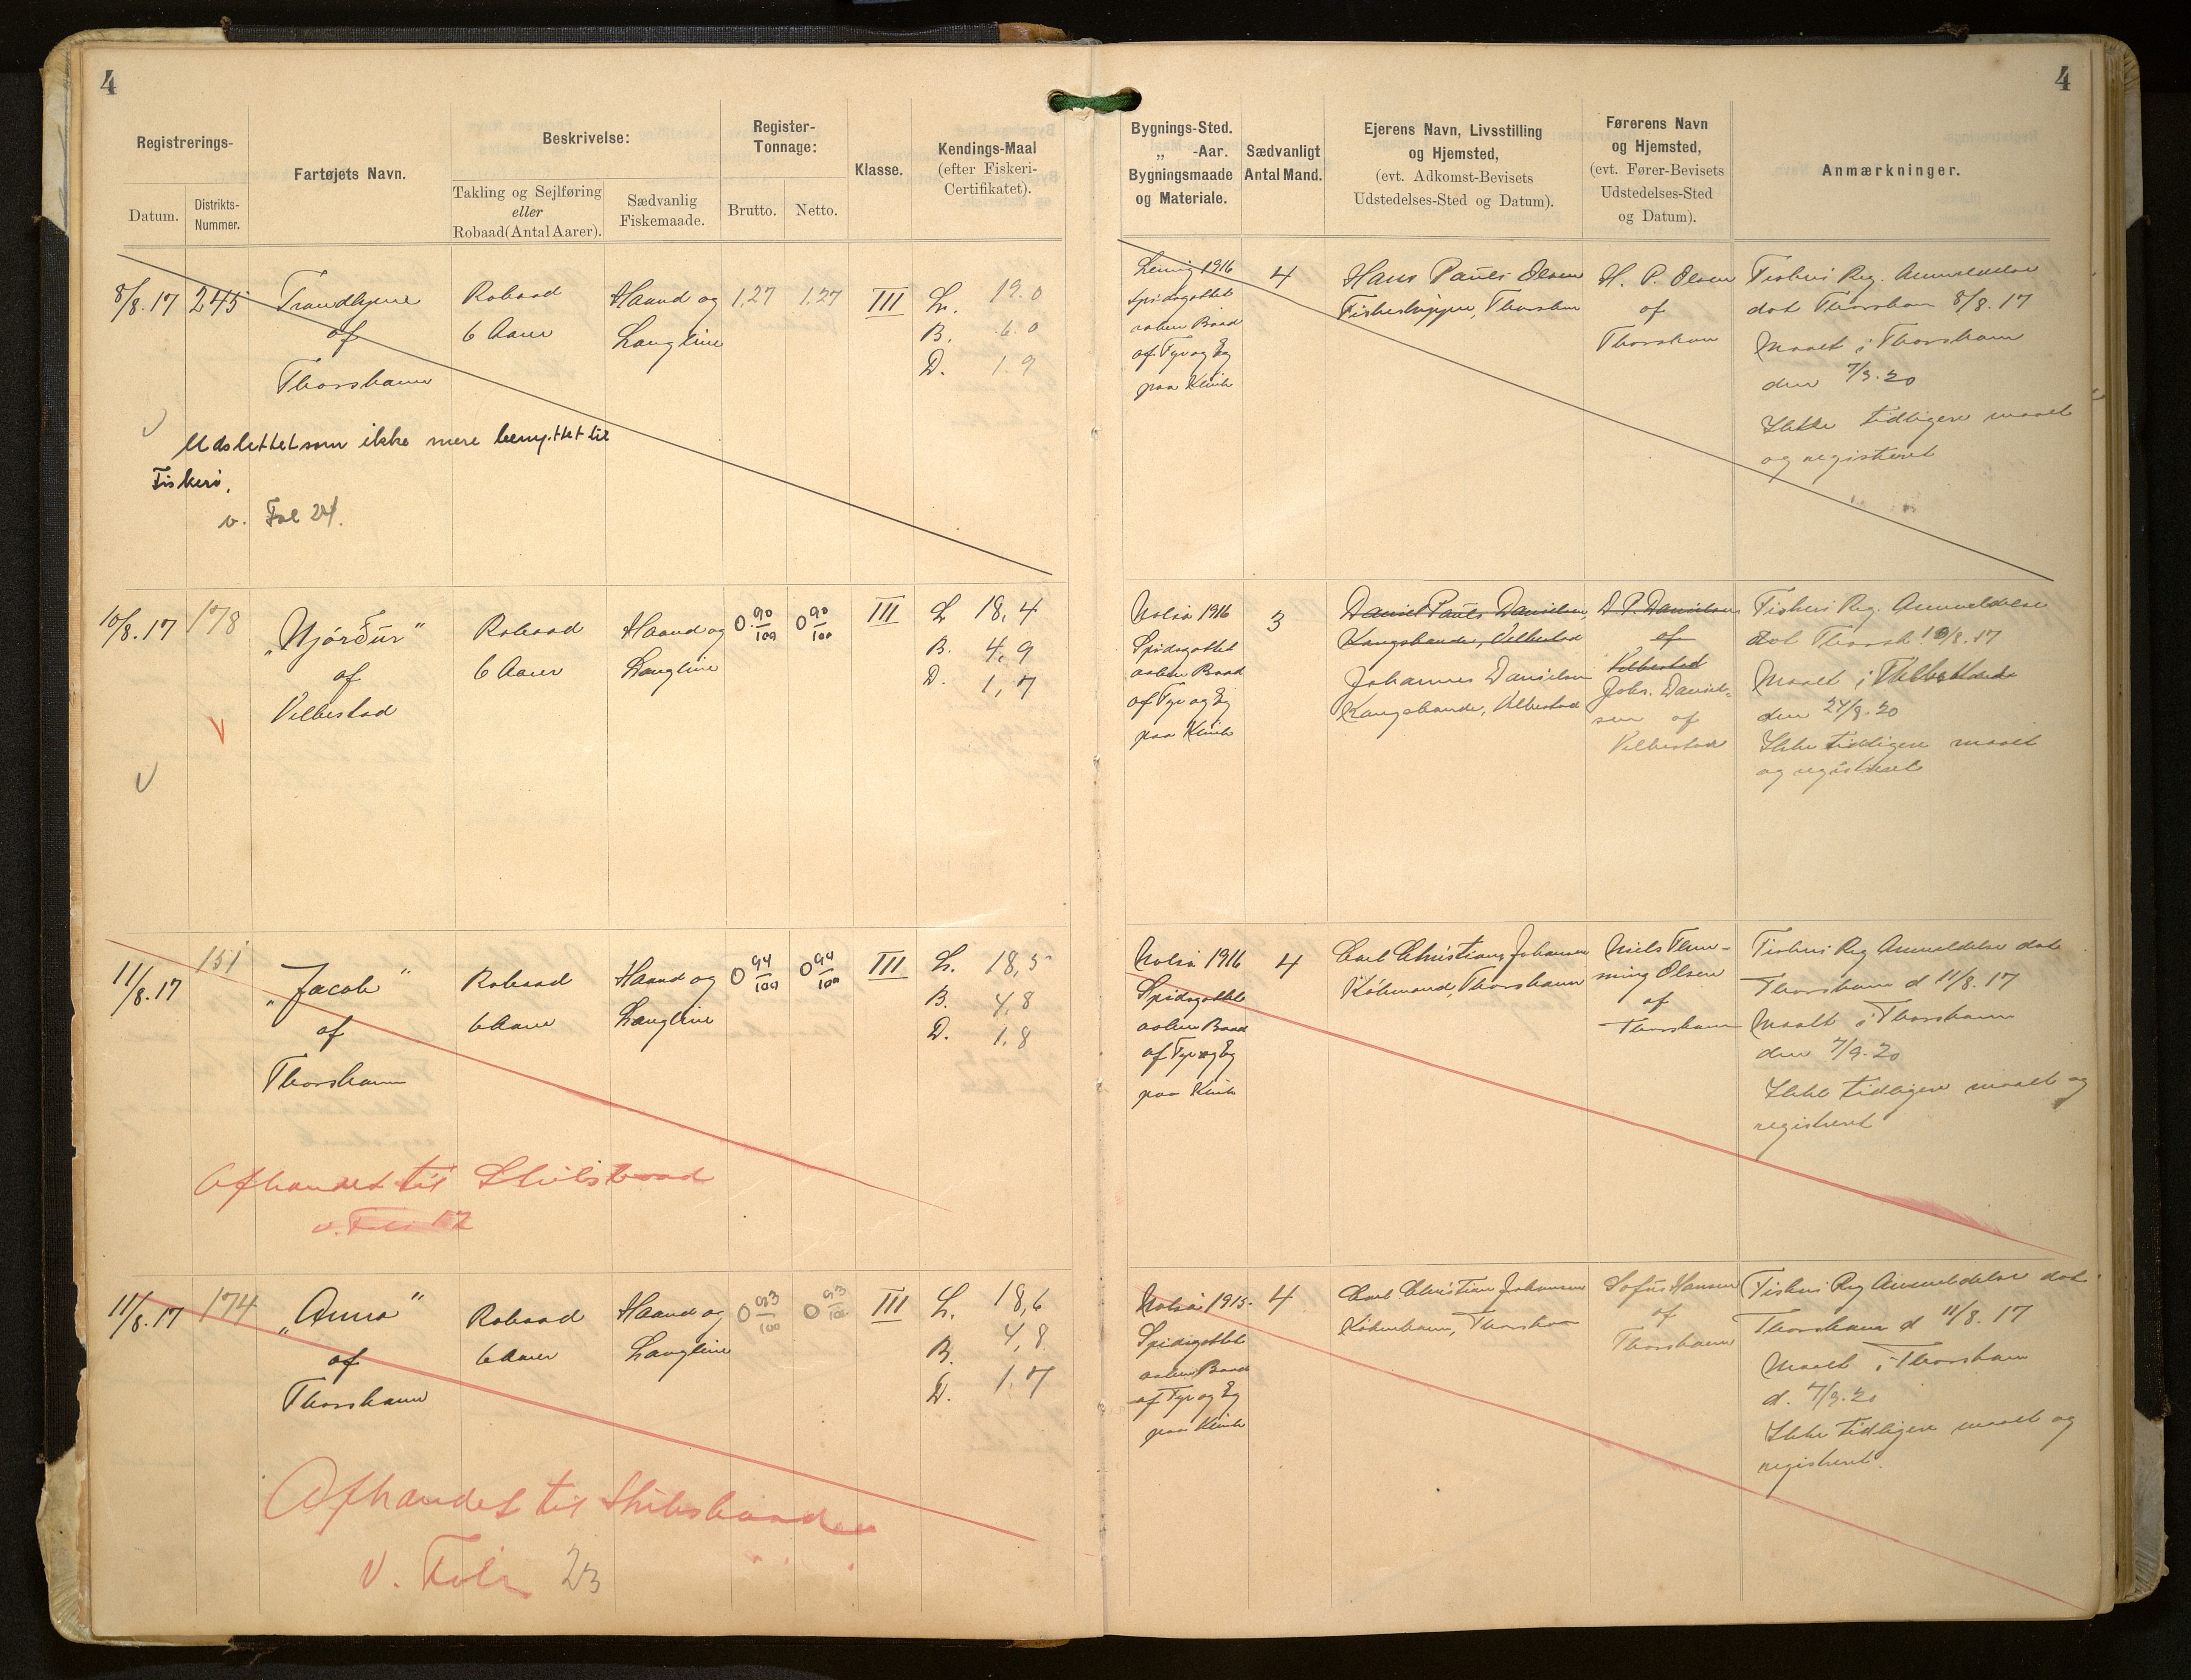 4
4
Registrerings-
Datum.
Distrikts-
Nummer.
Fartøjets Navn.
Beskrivelse:
Takling og Sejlføring
eller
Robaad (Antal Aarer).
Sædvanlig
Fiskemaade.
Register-
Tonnage:
Brutto.
Netto.
Klasse.
Kendings-Maal
(efter Fiskeri-
Certifikatet).
Bygnings-Sted.
„ -Aar.
Bygningsmaade
og Materiale.
Sædvanligt
Antal Mand.
Ejerens Navn, Livsstilling
og Hjemsted,
(evt. Adkomst-Bevisets
Udstedelses-Sted og Datum).
Førerens Navn
og Hjemsted,
(evt. Fører-Bevisets
Udstedelses-Sted
og Datum).
Anmærkninger.
8/8.17
245
of
Thorshavn
Robaad
6 Aarer
Haand og
Langline
1,27
1.27
III
L. 19.0
B. 6.0
D. 1.9
1916
aaben Baad
af Fyr og Eg
paa Klink
4
Hans Pauli Olsen
Fiskeskipper, Thorshavn
H. P. Olsen
of
Thorshavn
Fiskeri Reg. Anmeldelse
dat Thorshavn 8/8.17
Maalt i Thorshavn
den 7/9.20
Ikke tidligere maalt
og registreret
Udslettet som ikke mere benyttet til
Fiskeri.
v. Fol 24.
10/8.17
178
„Njørður“
of
Velbestad
Robaad
6 Aarer
Haand og
Langline
0 90/100
0 90/100
III
L 18,4
B. 4,9
D. 1,7
Nolsø 1916
Spidsgattet
aaben Baad
af Fyr og Eg
paa Klink
3
Daniel Pauli Danielsen,
Kongsbonde, Velbestad
Johannes Danielsen
Kongsbonde, Velbestad
D. P. Danielsen
of
Velbestad
Johs. Daniel-
sen of
Velbestad
Fiskeri Reg. Anmeldelse
dat Thorsh. 10/8.17
Maalt i Velbestad
den 24/9.20
Ikke tidligere maalt
og registreret
11/8.17
151
„Jacob“
of
Thorshavn
Robaad
6 Aarer
Haand og
Langline
0 94/100
0 94/100
III
L. 18,5
B. 4,8
D. 1.8
Nolsø 1916
Spidsgattet
aaben Baad
af Fyr og Eg
paa Klink
4
Carl Christian Johansen
Købmand, Thorshavn
Niels Flem-
ming Olsen
of
Thorshavn
Fiskeri Reg Anmeldelse dat
Thorshavn d 11/8.17
Maalt i Thorshavn
den 7/9.20
Ikke tidligere maalt og
registreret
Afhændet til Skibsbaad
v. Fol 12
11/8.17
174
„Anna“
of
Thorshavn
Robaad
6 Aarer
Haand og
Langline
0 93/100
0 93/100
III
L. 18,6
B. 4,8
D. 1,7
Nolsø 1915.
Spidsgattet
aaben Baad
af Fyr og Eg
paa Klink
4
Carl Christian Johansen
Thorshavn
Sofus Hansen
of
Thorshavn
Fiskeri Reg Anmeldelse dat.
Thorshavn d 11/8.17
Maalt i Thorshavn
d. 7/9.20
Ikke tidligere maalt og
registreret.
Afhændet til Skibsbaad
v. Folio 23